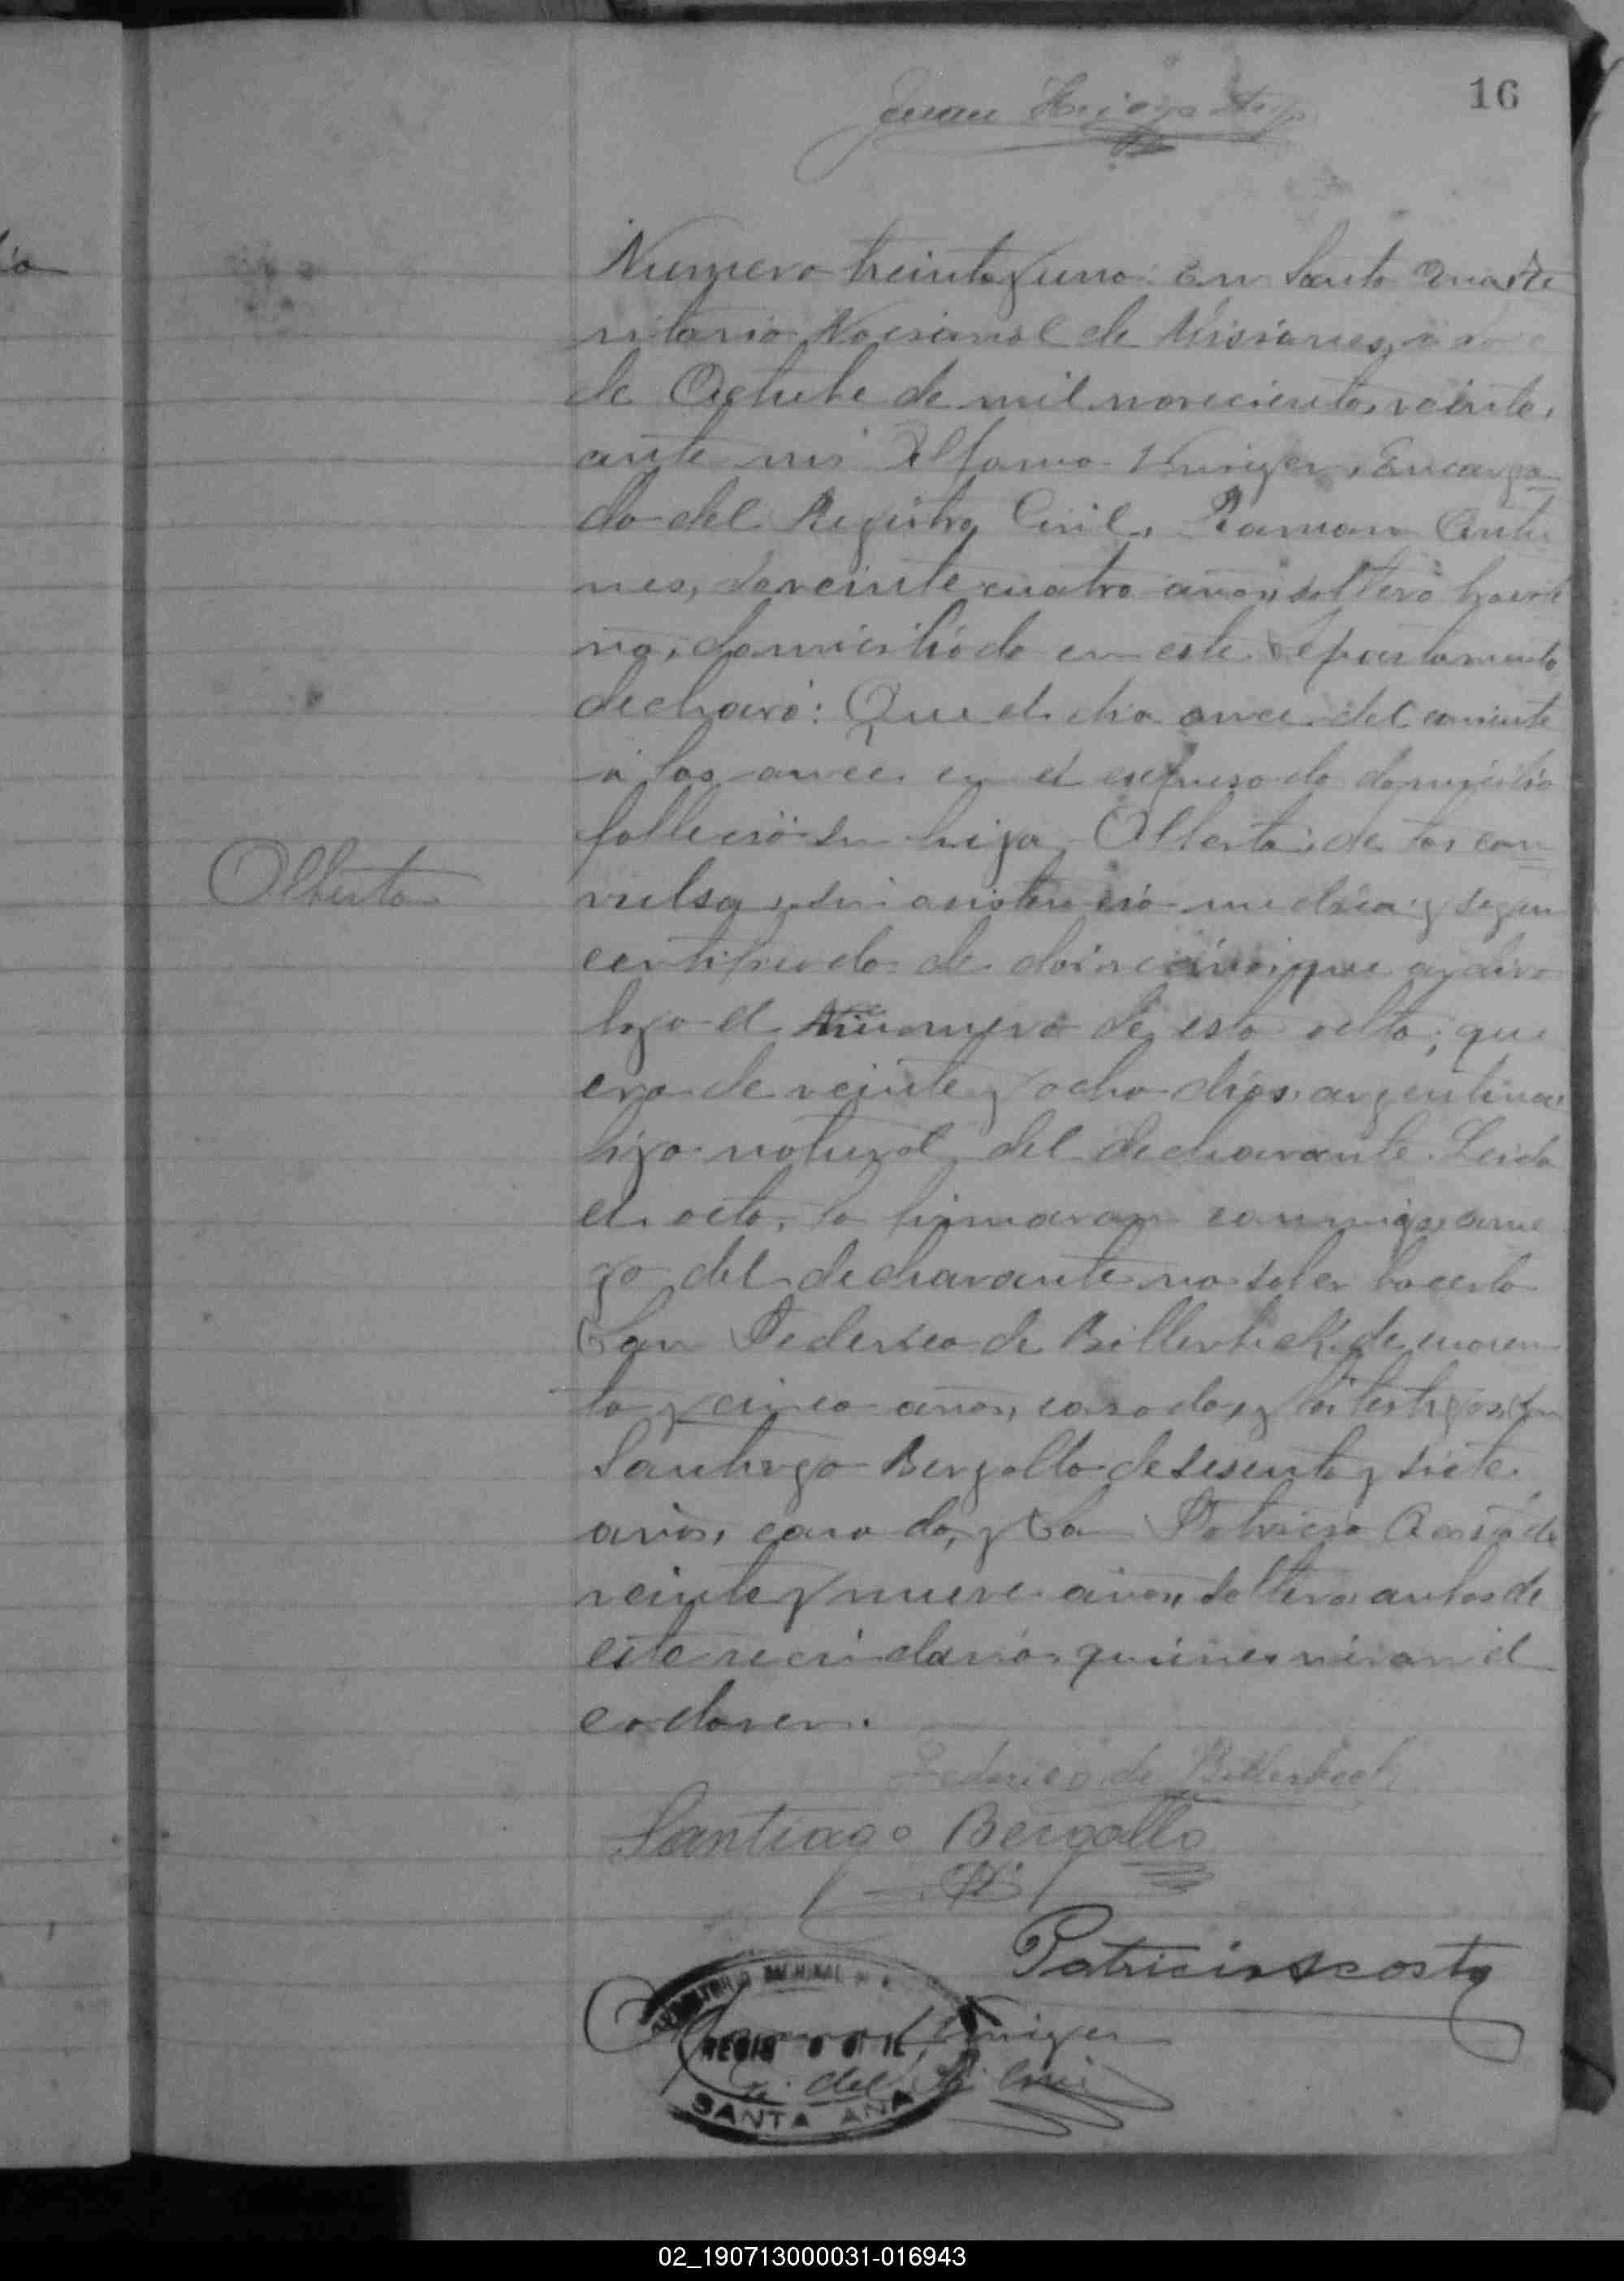 16
Juan
Numero treinta y uno: En Santa Ana, Te
rritorio Nacional de Misiones, a
de Octubre de mil novecientos veinte,
ante mi Encarga
do del Registro Civil, Ramon Antu
nes, de veinte cuatro años, soltero
domiciliado en este departamento,
declaró: Que el dia once del corriente
a las once en el expresado domicilio
fallecio su hija Alberta, de tos con
Alberta
vulsa, sin asistencia medica, y segun
certificado de que archivo
bajo el numero de esta acta; que
era de veinte y ocho dias, argentina,
hija natural del declarante. Leida
el acta, la firmaron conmigo, a rue
go del declarante no saber hacerlo
Don Federico de Billerbeck, de cuaren
ta y cinco años, casado, y los testigos, Don
Santiago Bergallo de sesenta y siete
años, casado, y Don Patricio Acosta de
veinte y nueve años, soltero, ambos de
este vecindario, quienes vieron el
cadaver.
Federico de Billerbeck
Santiago Bergallo
Patricio Acosta
del R. Civil
SANTA ANA
02_190713000031-016943